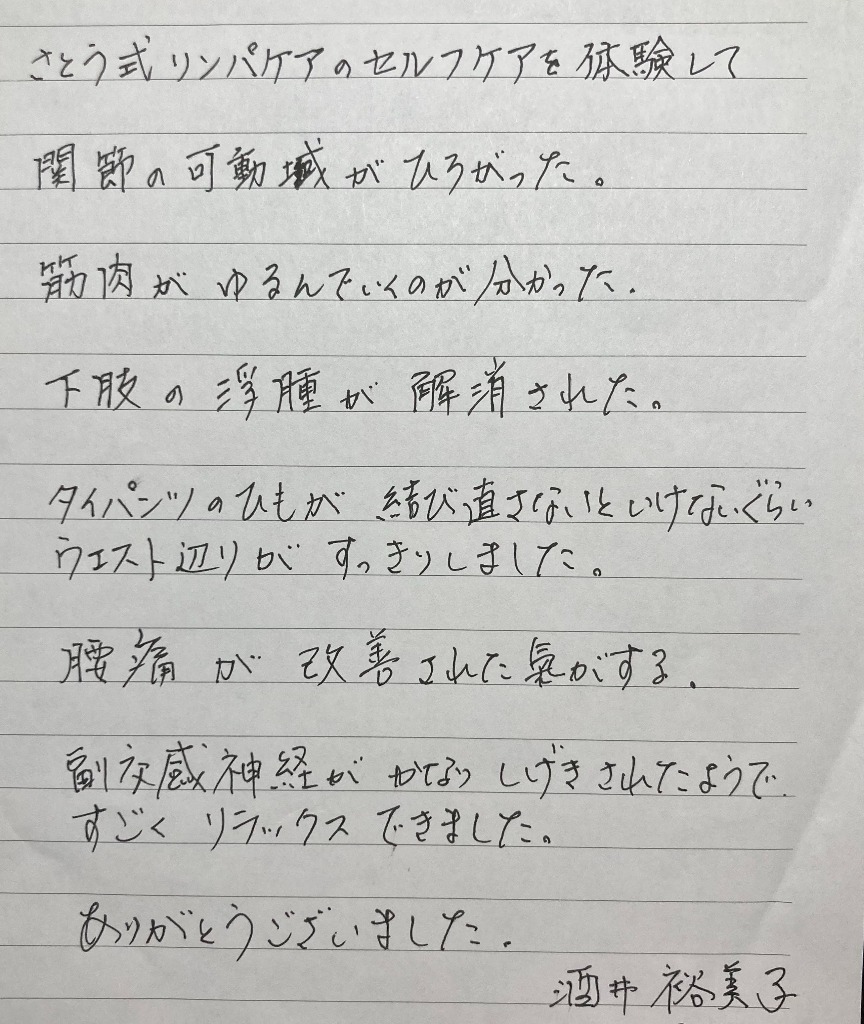 さとう式リンパケアのセルフケアを体験して
関節の可動域がひろがった。
筋肉がゆるんでいくのが分かった.
下肢の浮腫が解消された。
タイパンツのひもが結び直さないといけないぐらい
ウエスト辺りがすっきりしました。
腰痛が改善された氣がする.
副交感神経がかなりしげきされたようで.
すごくリラックスできました。
ありがとうございました.
酒井裕美子